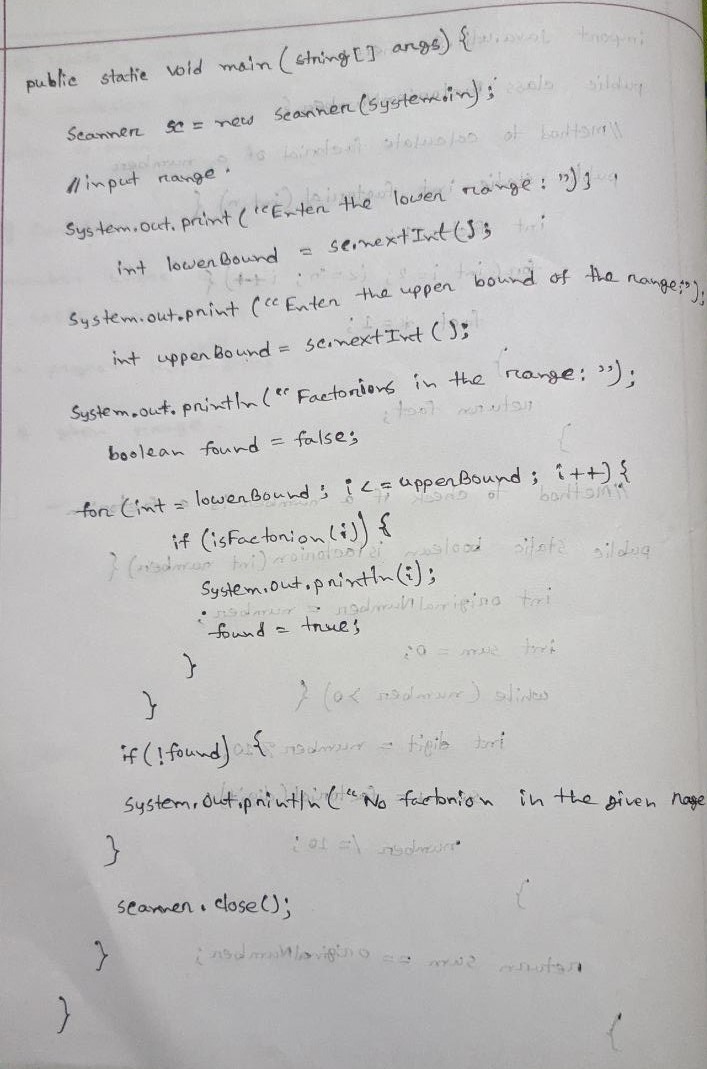 public static void main (string [] args) {
Scanner sc = new Scanner (System.in) ;
// input range.
System.out.print (“Enter the lower range : ”) ;
int lowerBound = sc.nextInt () ;
System.out.print (“Enter the upper bound of the range:”) ;
int upperBound = sc.nextInt () ;
System.out.println (“Factorions in the range: ”) ;
boolean found = false;
for (int = lowerBound ; i <= upperBound ; i++) {
if (isFactorion (i)) {
System.out.println (i) ;
found = true;
}
}
if (! found) {
System.out.println (“No factorion in the given nage
}
scanner.close();
}
}